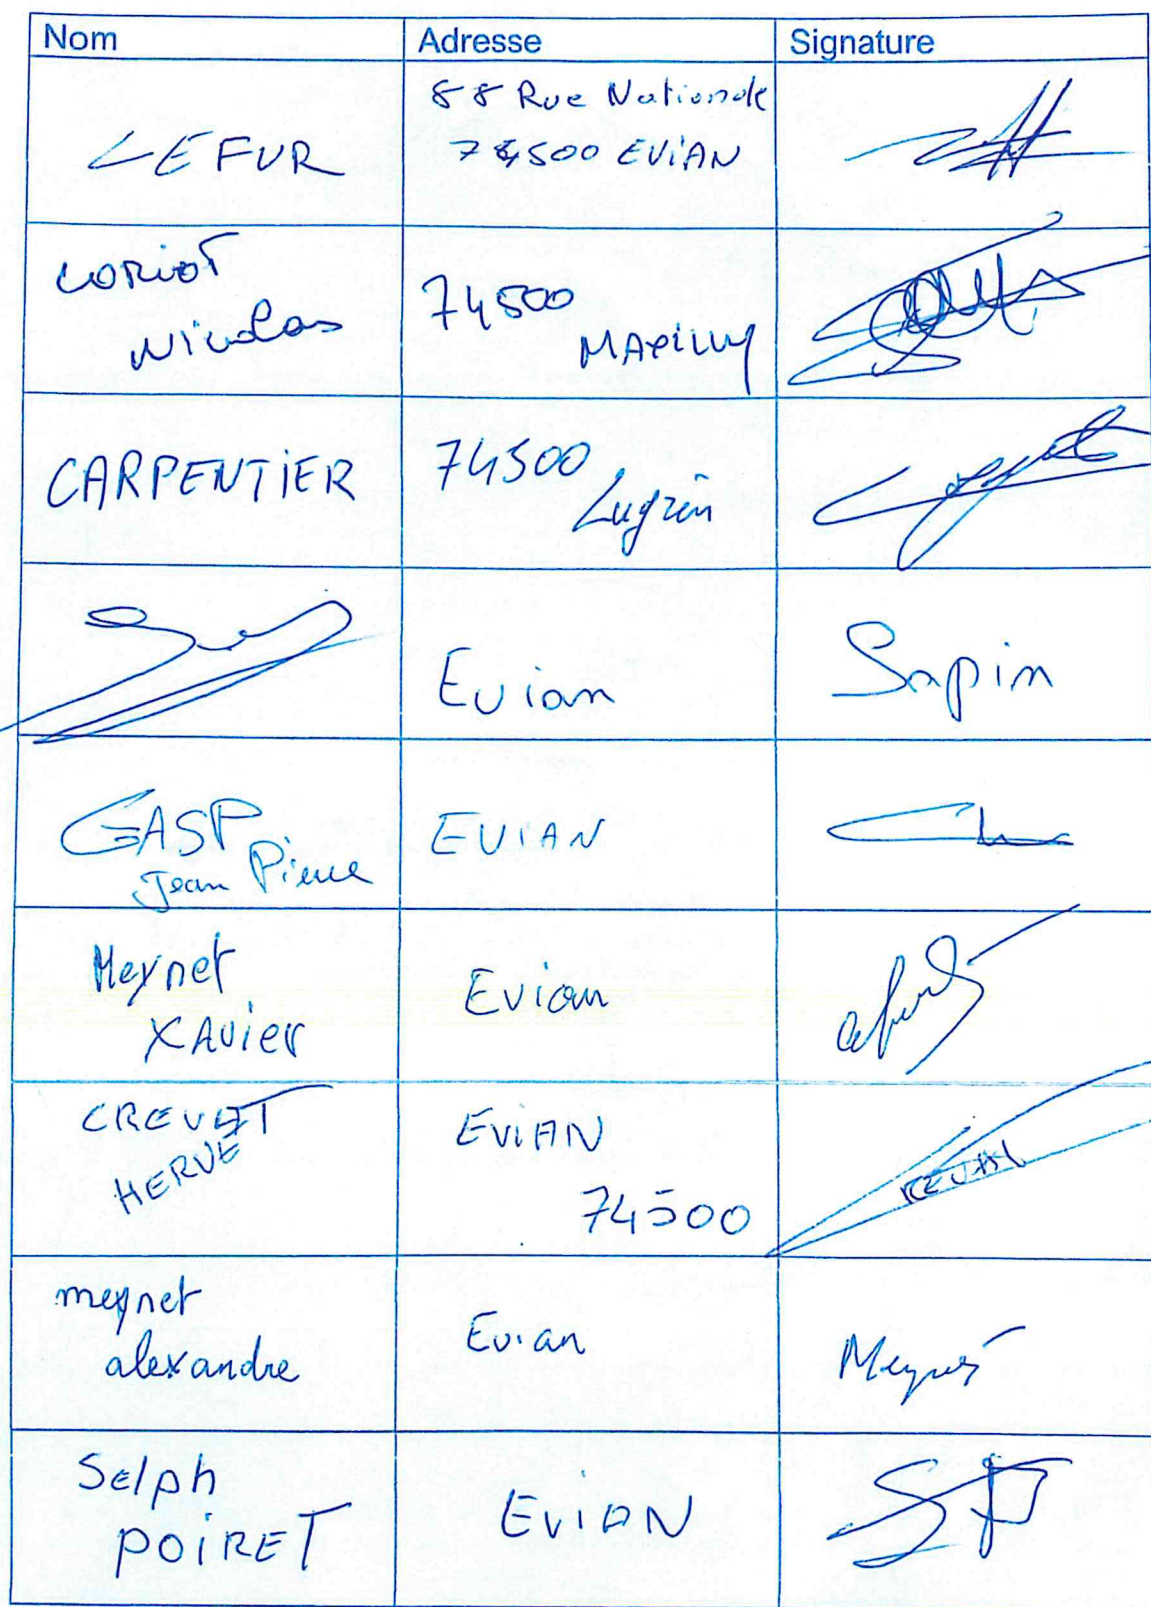 Nom Adresse Signature
88 Rue Nationale
LE FUR 74500 EVIAN
LORIOT
Nicolas 74500
MAXILLY
CARPENTIER 74500
Lugrin
Evian Sapin
GASP EVIAN
Jean Pierre
Meynet
XAVIER Evian
CREVET EVIAN
HERVÉ
74500
meynet
alexandre Evian Meynet
Selph
POIRET EVIAN SP